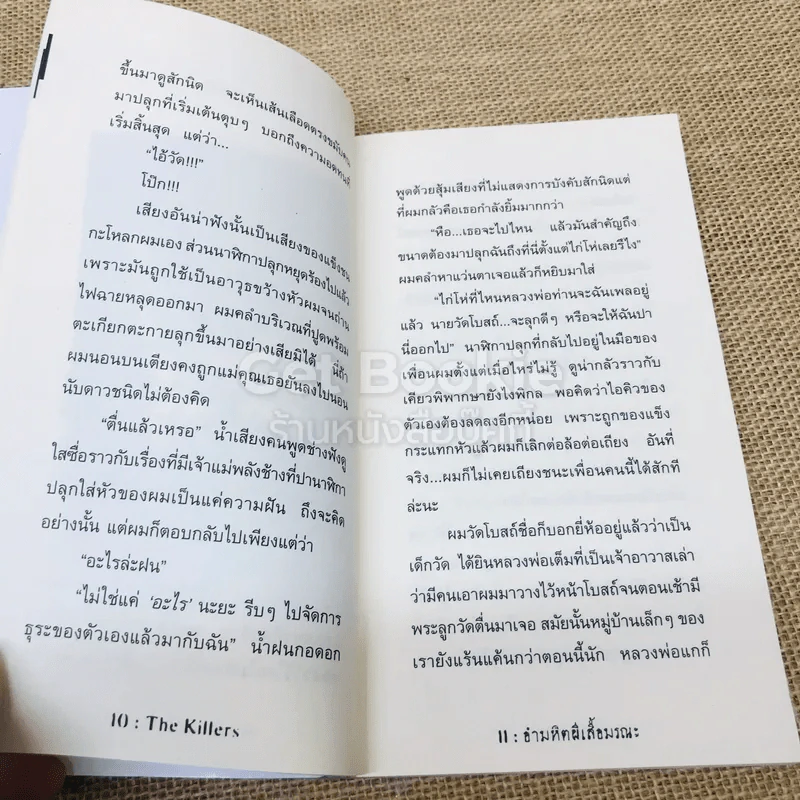 ขึ้นมาดูสักนิด จะเห็นเส้นเลือดตรงขมับ
มาปลุกที่เริ่มเต้นตุบๆ บอกถึงความอดทนที่
เริ่มสิ้นสุด แต่ว่า...
“ไอ้วัด!!!”
โป๊ก!!!
เสียงอันน่าฟังนั้นเป็นเสียงของแข็งชน
กะโหลกผมเอง ส่วนนาฬิกาปลุกหยุดร้องไปแล้ว
เพราะมันถูกใช้เป็นอาวุธขว้างหัวผมจนถ่าน
ไฟฉายหลุดออกมา ผมคลำบริเวณที่ปูดพร้อม
ตะเกียกตะกายลุกขึ้นมาอย่างเสียมิได้ นี่ถ้า
ผมนอนบนเตียงคงถูกแม่คุณเธอยันลงไปนอน
นับดาวชนิดไม่ต้องคิด
“ตื่นแล้วเหรอ” น้ำเสียงคนพูดช่างฟังดู
ใสซื่อราวกับเรื่องที่มีเจ้าแม่พลังช้างที่ปานาฬิกา
ปลุกใส่หัวของผมเป็นแค่ความฝัน ถึงจะคิด
อย่างนั้น แต่ผมก็ตอบกลับไปเพียงแต่ว่า
“อะไรล่ะฝน”
“ไม่ใช่แค่ ‘อะไร’ นะยะ รีบๆ ไปจัดการ
ธุระของตัวเองแล้วมากับฉัน” น้ำฝนกอดอก
10 : The Killers
พูดด้วยสุ้มเสียงที่ไม่แสดงการบังคับสักนิดแต่
ที่ผมกลัวคือเธอกำลังยิ้มมากกว่า
“หือ...เธอจะไปไหน แล้วมันสำคัญถึง
ขนาดต้องมาปลุกฉันถึงที่นี่ตั้งแต่ไก่โห่เลยรึไง”
ผมคลำหาแว่นตาเจอแล้วก็หยิบมาใส่
“ไก่โห่ที่ไหนหลวงพ่อท่านจะฉันเพลอยู่
แล้ว นายวัดโบสถ์...จะลุกดีๆ หรือจะให้ฉันปา
นี่ออกไป” นาฬิกาปลุกที่กลับไปอยู่ในมือของ
เพื่อนผมตั้งแต่เมื่อไหร่ไม่รู้ ดูน่ากลัวราวกับ
เคียวพิพากษายังไงพิกล พอคิดว่าไอคิวของ
ตัวเองต้องลดลงอีกหน่อย เพราะถูกของแข็ง
กระแทกหัวแล้วผมก็เลิกต่อล้อต่อเถียง อันที่
จริง...ผมก็ไม่เคยเถียงชนะเพื่อนคนนี้ได้สักที
ล่ะนะ
ผมวัดโบสถ์ชื่อก็บอกยี่ห้ออยู่แล้วว่าเป็น
เด็กวัด ได้ยินหลวงพ่อเต็มที่เป็นเจ้าอาวาสเล่า
ว่ามีคนเอาผมมาวางไว้หน้าโบสถ์จนตอนเช้ามี
พระลูกวัดตื่นมาเจอ สมัยนั้นหมู่บ้านเล็กๆ ของ
เรายังแร้นแค้นกว่าตอนนี้นัก หลวงพ่อแกก็
11 : อำมหิตผีเสื้อมรณะ
Get Bookie
ร้านหนังสือบุ๊คกี้